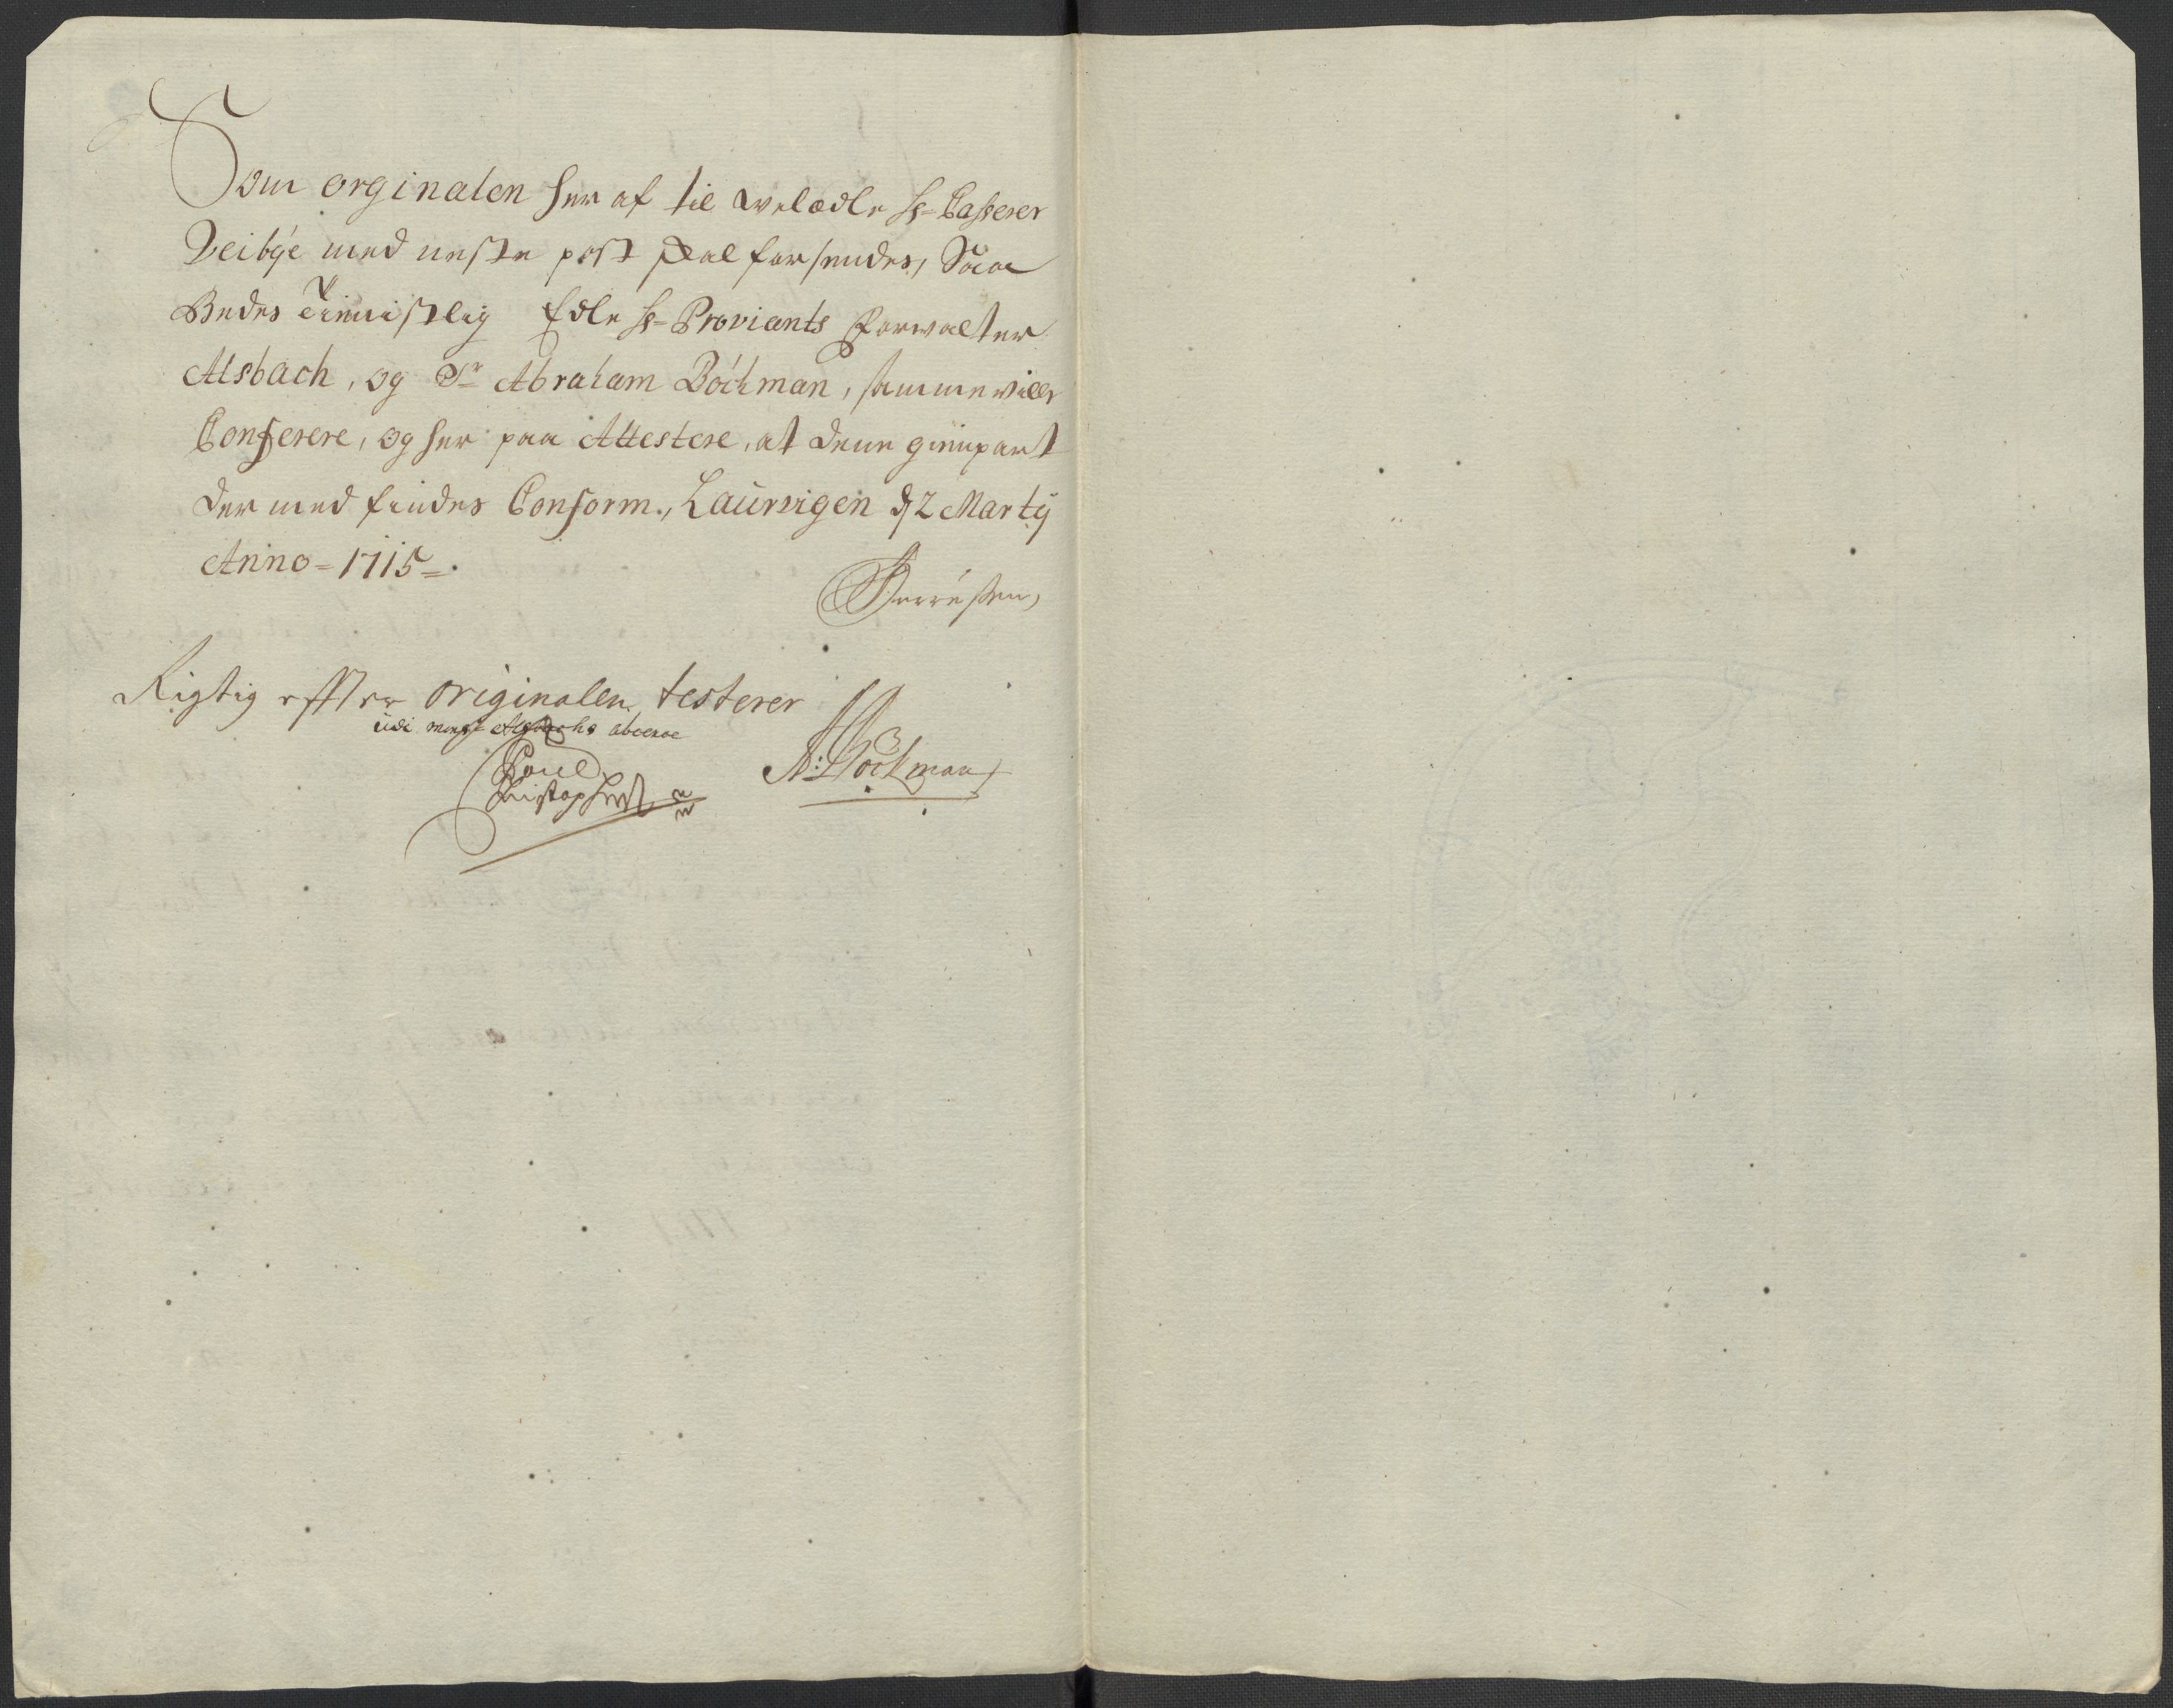 Som orginalen her af til welædle Hr Casserer
Veibye med neste post skal forsendes, Saa
Bedes tienistlig Edle Hr Proviants Forvalter
Alsbach, og Sr Abraham Böckman, samme ville
Conferere, og her paa Attestere, at denne gienpart
der med findes Conform., Laurvigen d 2 Martÿ
Anno = 1715 =.
Rigtig effter originalen testerer
udi monsr Alsbachs absence
Poul
Christophers
A: Böckman